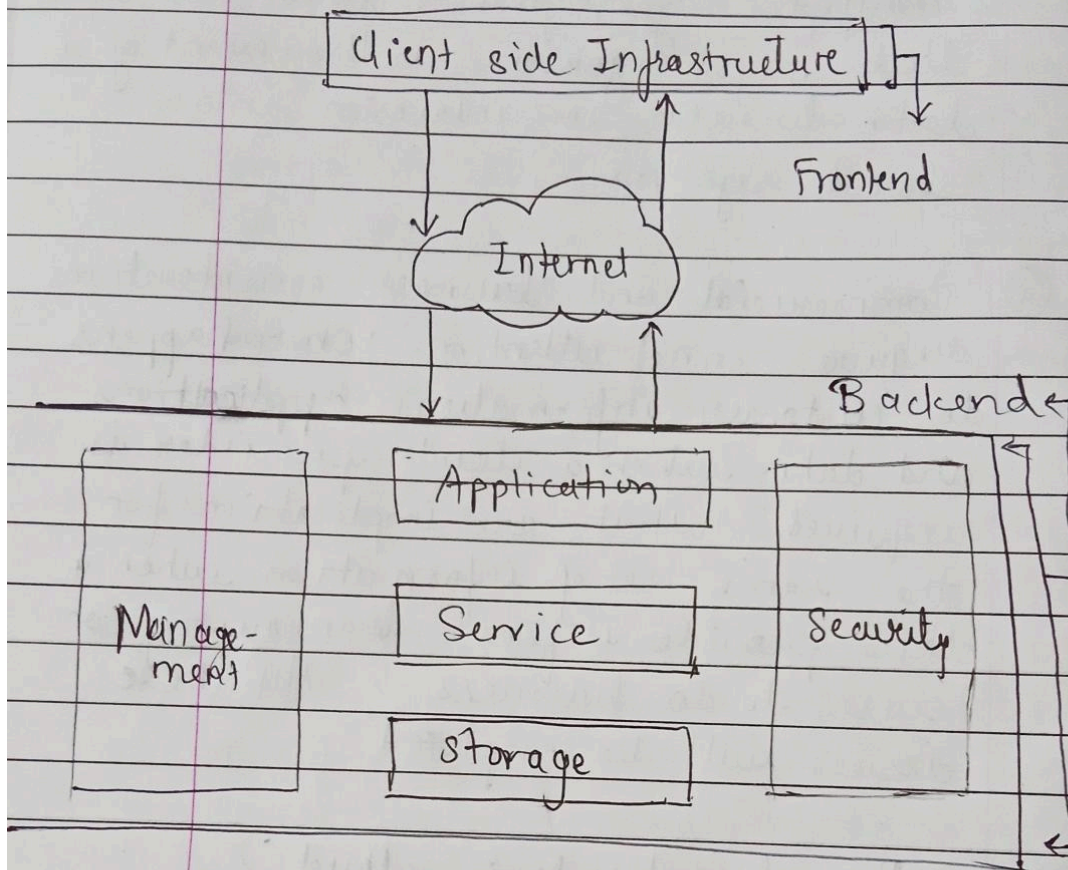 Client side Infrastructure
Frontend
Internet
Backend
Application
Manage-
ment
Service
Security
Storage